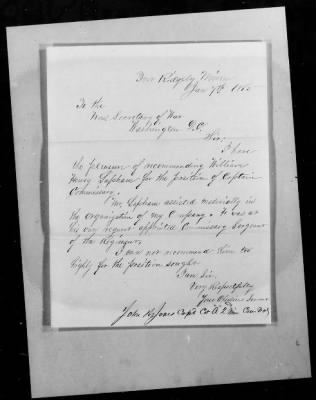 Fort Ridgely Minn
Jan 7th 186
To the
Hon. Secretary of War
Washington D.C.
Sir,
I have
the pleasure of recommending William
Henry Lapham for the position of Captain
Commissary.
Mr. Lapham assisted materially in
the organization of my Company. & was at
his own request appointed Commissary Sergeant
of the Regiment.
I can not recommend him too
highly for the position sought.
I am Sir,
Very Respectfully
Your Obedient Servant
John Jones Capt Co A 2